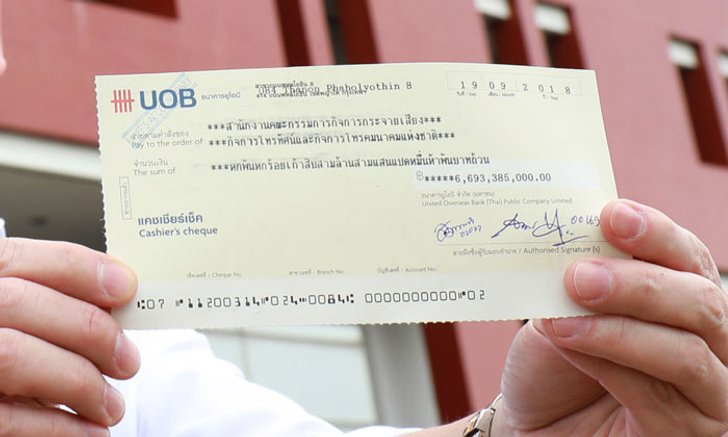 UOB ธนาคารยูโอบี
084 Thanon Phaholyothin 8
1 9 0 9 2 0 1 8
วัน / Day เดือน / Month ปี / Year
จ่ายตามคำสั่งของ
Pay to the order of
***สำนักงานคณะกรรมการกิจการกระจายเสียง***
***กิจการโทรทัศน์และกิจการโทรคมนาคมแห่งชาติ***
จำนวนเงิน
The sum of
***หกพันหกร้อยเก้าสิบสามล้านสามแสนแปดหมื่นห้าพันบาทถ้วน
฿*****6,693,385,000.00
ธนาคารยูโอบี จำกัด (มหาชน)
United Overseas Bank (Thai) Public Company Limited
แคชเชียร์เช็ค
Cashier's cheque
ลายมือชื่อผู้รับมอบอำนาจ / Authorised Signature (s)
เช็คเลขที่ / Cheque No. สาขาเลขที่ / Branch No. บัญชีเลขที่ / Account No.